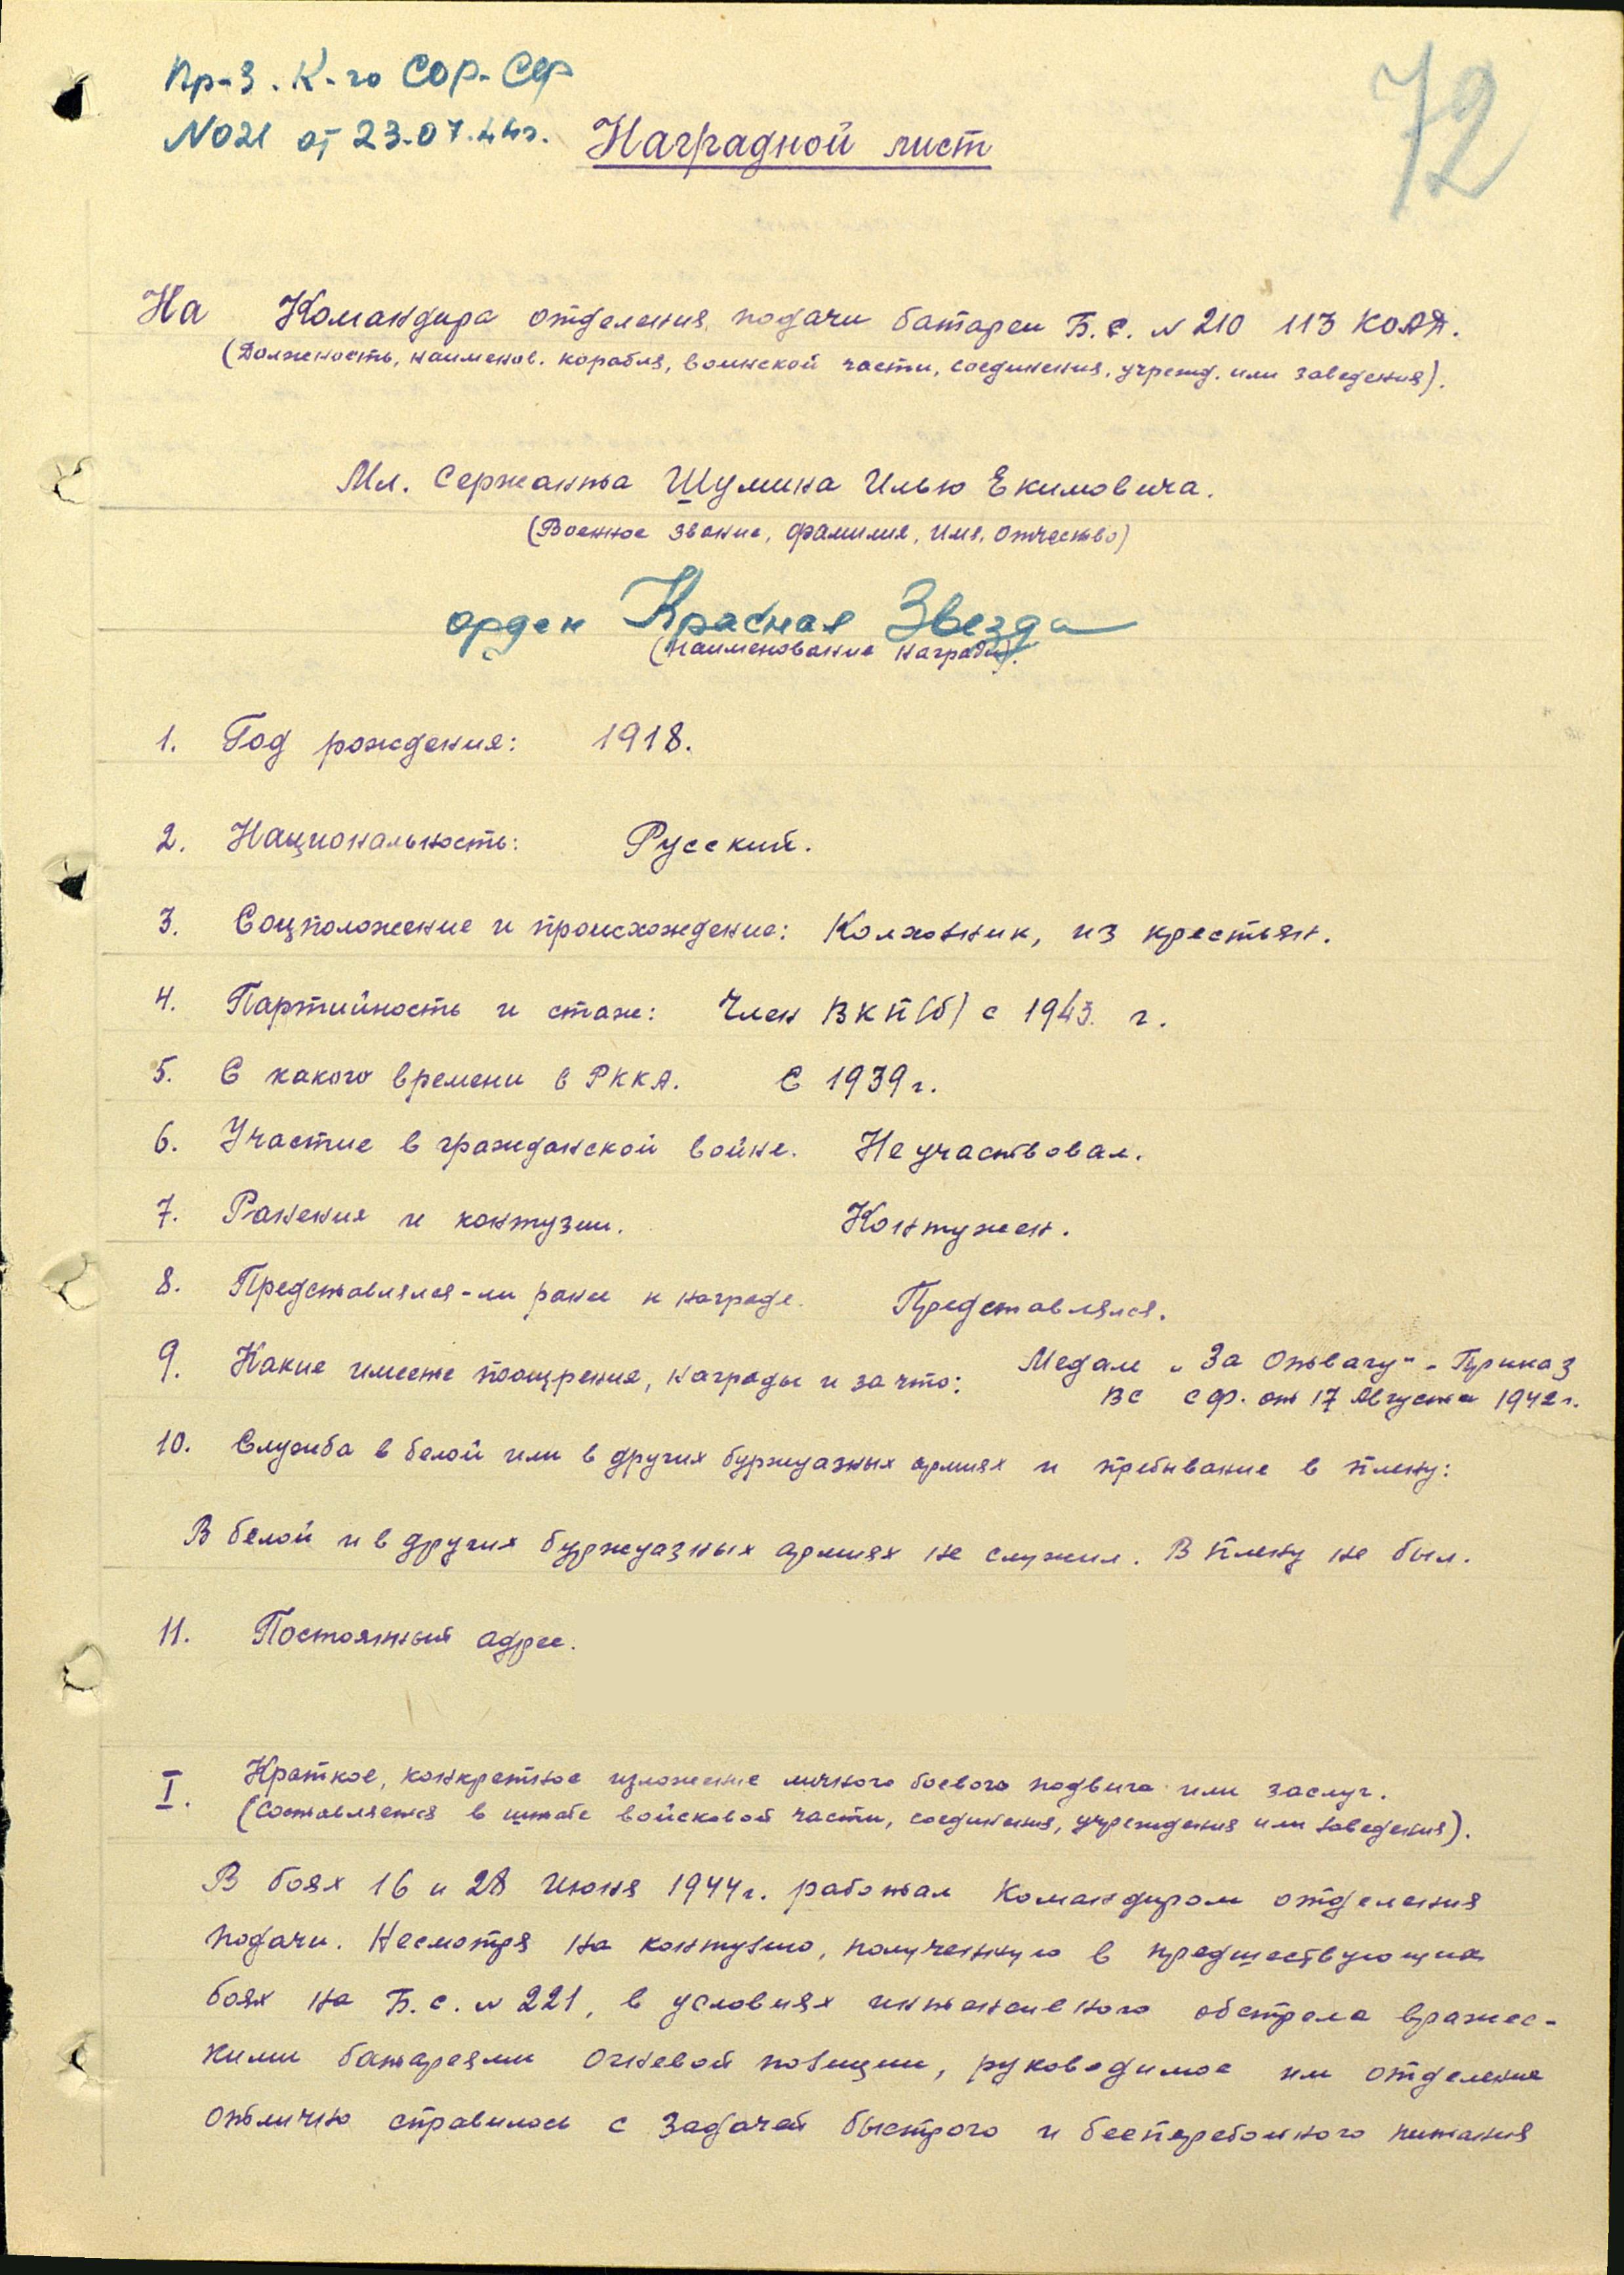 Пр-з. К-го СОР-Сер
№021 от 23.07.44г.
72
Наградной лист
На Командира отделения подачи батареи Б.С. N 210 113 КОАД.
(Должность, наименов. корабля, воинской части, соединения, учрежд. или заведения).
Мл. Сержанта Шумина Илью Екимовича.
(Военное звание, фамилия, имя, отчество)
орден Красная Звезда
(Наименование награды).
1. Год рождения: 1918.
2. Национальность: Русский.
3. Соцположение и происхождение: Колхозник, из крестьян.
4. Партийность и стаж: Член ВКП(б) с 1943. г.
5. С какого времени в РККА. С 1939 г.
6. Участие в гражданской войне. Не участвовал.
7. Ранения и контузии. Контужен.
8. Представлялся-ли ранее к награде. Представлялся.
9. Какие имеете поощрения, награды и за что: Медаль „За Отвагу“ - Приказ
ВС СФ. от 17 Августа 1942 г.
10. Служба в белой или в других буржуазных армиях и пребывание в плену:
В белой и в других буржуазных армиях не служил. В плену не был.
11. Постоянный адрес.
I. Краткое, конкретное изложение личного боевого подвига или заслуг.
(Составляется в штабе войсковой части, соединения, учреждения или заведения).
В боях 16 и 28 Июня 1944 г. работал Командиром отделения
подачи. Несмотря на контузию, полученную в предшествующих
боях на Б.С. N 221, в условиях интенсивного обстрела вражес-
кими батареями огневой позиции, руководимое им отделение
отлично справилось с задачей быстрого и бесперебойного питания